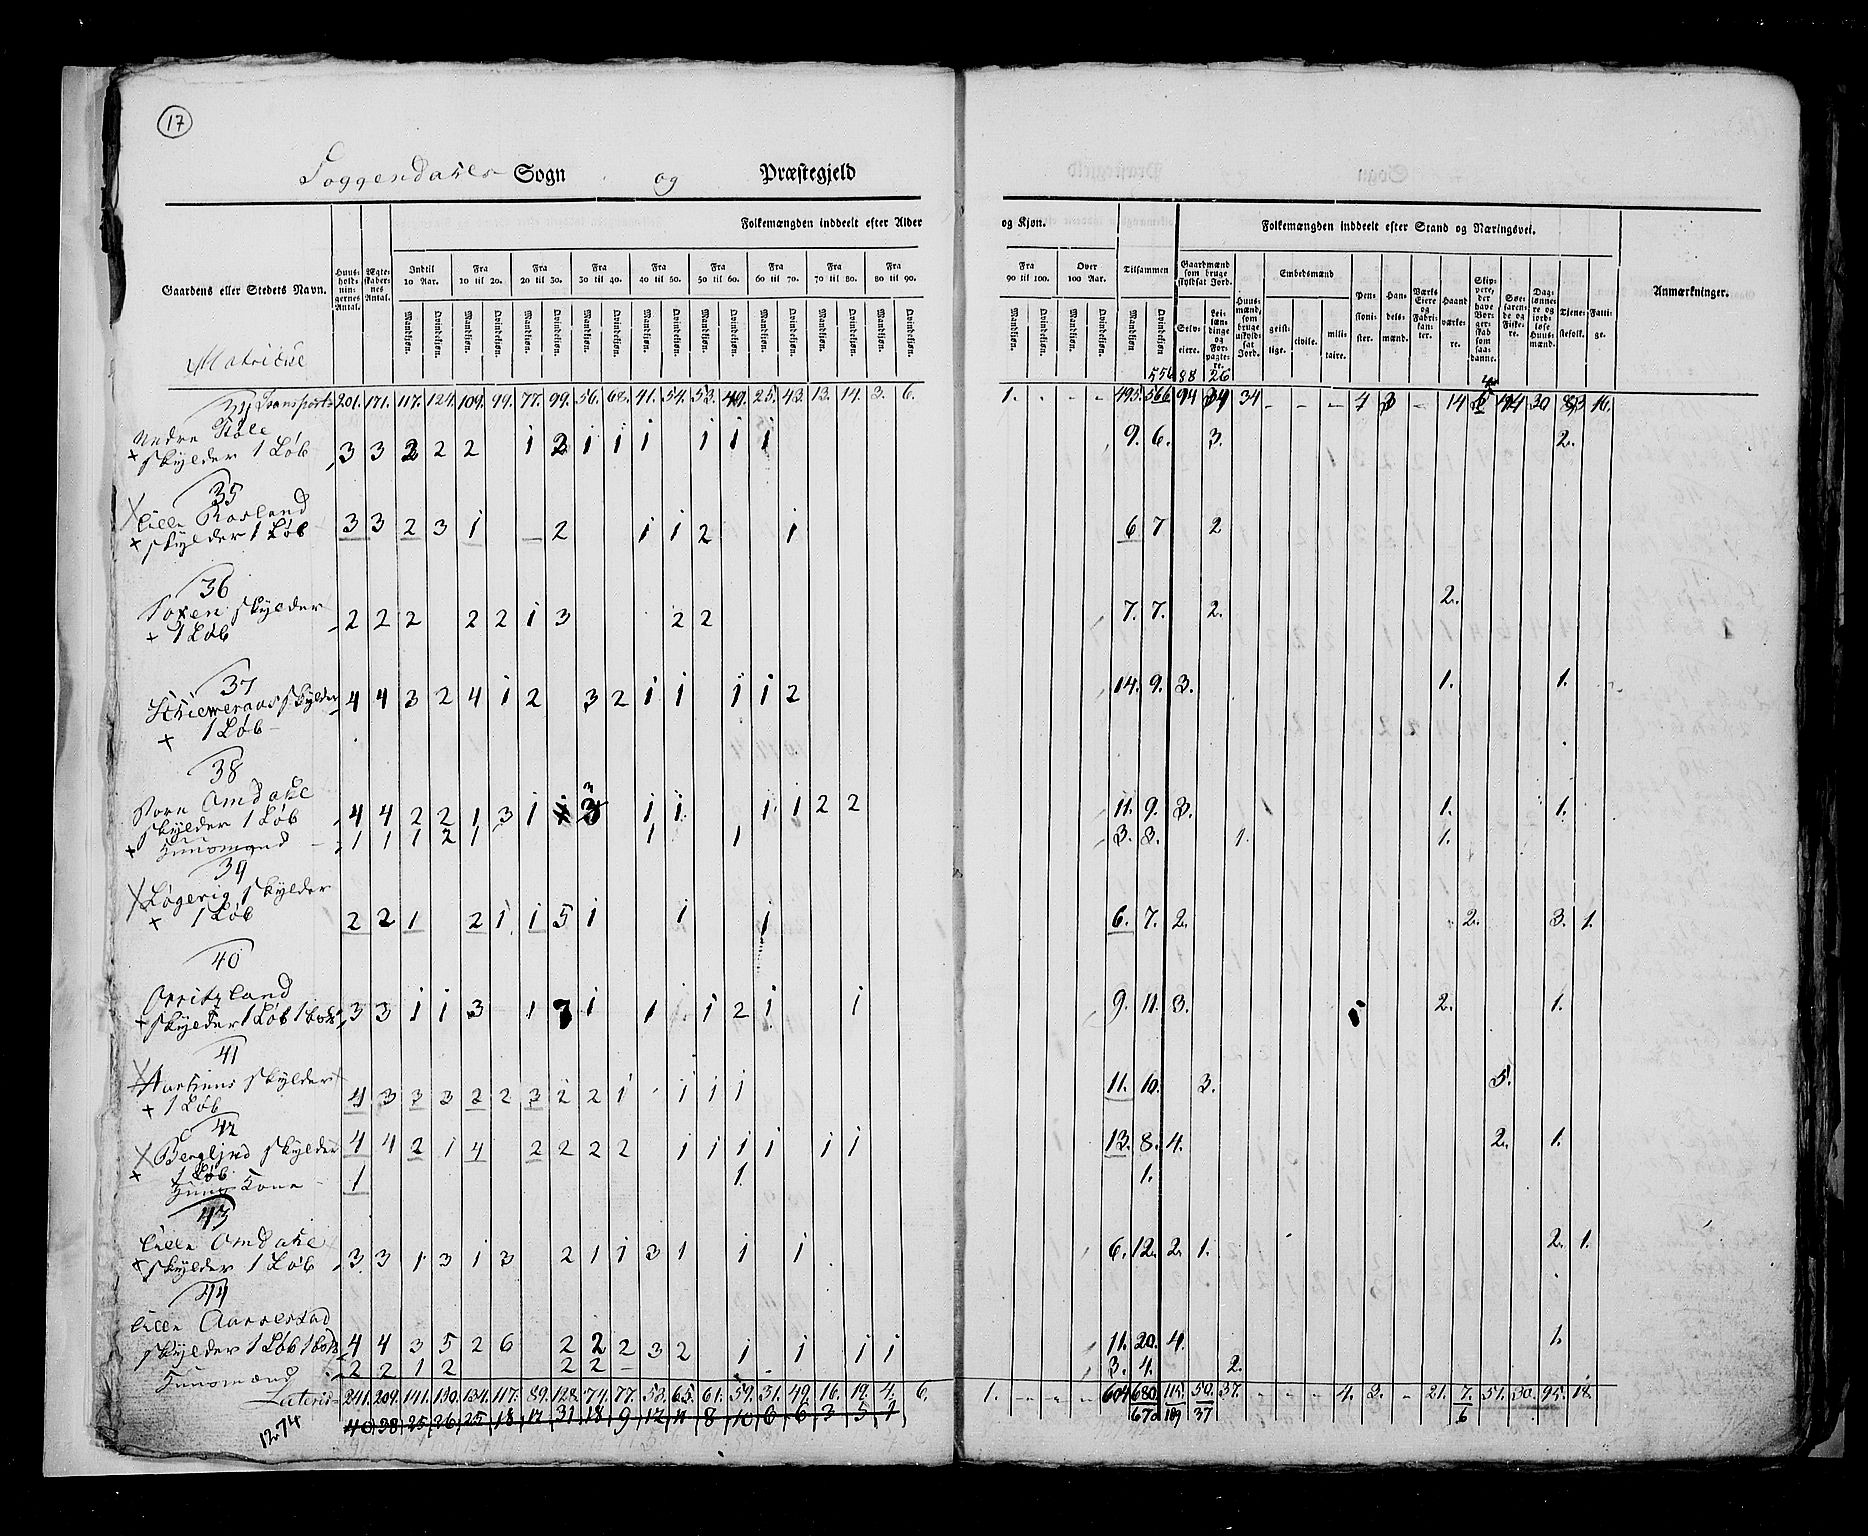 17
Soggendahls Sogn og Præstegjeld
Folkemængden inddeelt efter Alder og Kjøn.
Folkemængden inddeelt efter Stand og Næringsvei.
Gaardens eller Stedets Navn.
Huus-holdnin-gernes Antal.
Ægte-skaber-nes Antal.
Indtil 10 Aar.
Fra 10 til 20.
Fra 20 til 30.
Fra 30 til 40.
Fra 40 til 50.
Fra 50 til 60.
Fra 60 til 70.
Fra 70 til 80.
Fra 80 til 90.
Fra 90 til 100.
Over 100 Aar.
Tilsammen
Mandkjøn. Qvindekjøn.
Gaardmænd som bruge skyldsat Jord.
Selv-eiere.
Lei-læn-dinge og For-pagte-re.
Huus-mænd, som bruge uskyld-sat Jord.
Embedsmænd
geist-lige. civile. mili-taire.
Pen-sioni-ster.
Han-dels-mænd.
Værks Eiere og Fabri-kan-ter.
Haand-værke-re.
Skip-pere, der have Bor-ger-skab som saa-danne.
Søe-faren-de og Fiske-re.
Dag-lønne-re og jord-løse Huus-mænd.
Tjene-stefolk.
Fatti-ge.
Anmærkninger.
Matricul
556 88 26
34 Transport 201. 171. 117. 124. 109. 99. 77. 99. 56. 68. 41. 54. 53. 49. 25. 43. 13. 14. 3. 6. 1. - - - 495. 566 94 34 34 - - - 4 3 - 14
Nedre
+ skylder 1 Løb 3 3 2 2 2 1 2 1 1 1 1 1 1 1 9. 6. 3. 2.
35
Lille Rosland
+ skylder 1 Løb 3 3 2 3 1 2 1 1 2 1 6 7 2
36
skylder
+ 1 Løb 2 2 2 2 2 1 3 2 2 7. 7. 2. 2.
37
skylder 4 4 3 2 4 1 2 3 2 1 1 1 1 2 14. 9. 3. 1. 1.
+ 1 Løb
38
Store Omdahl
skylder 1 Løb 4 4 2 2 1 3 1 1 3 1 1 1 1 2 2 11. 9. 3. 1. 1.
+ Huusmænd 1 1 1 2 1 1 1 3. 8. 1. 1.
39
Løgerig skylder
+ 1 Løb 2 2 1 2 1 1 5 1 1 1 6. 7. 2. 2. 3. 1.
40
Orritzland
+ skylder 1 Løb 3 3 1 1 3 1 7 1 1 1 2 1 1 9. 11. 3. 1 2. 1.
41
skylder
+ 1 Løb 4 3 3 3 2 2 3 2 2 1 1 1 1 11. 10. 3. 5.
42
skylder 4 4 2 1 4 2 2 2 2 1 1 1 1 1 1 13. 8. 4. 2. 1.
+ 1 Løb
Huus Kone 1 1. 1.
43
Lille Omdahl
skylder 1 Løb 3 3 1 3 1 3 2 1 1 3 1 1 1 6. 12. 2. 1. 2. 1.
44
Lille Aarrestad
skylder 1 Løb 4 4 3 5 2 6 2 2 2 3 2 1 1 1 1 11. 20. 4. 1.
Huusmænd 2 2 1 2 2 2 3. 4. 2.
Lateris 241. 209. 141. 150. 134. 117. 89. 128. 74. 77. 53. 65. 61. 59. 31. 49. 16. 19. 4. 6. 1. - - - 604 680 115. 50. 37. - - - 4. 3. - 21. 7. 51. 30. 95. 18.
40 38 25 26 25 18 12 31 18 9 12 11 8 10 6 6 3 5 1 670 109 37 6
1274